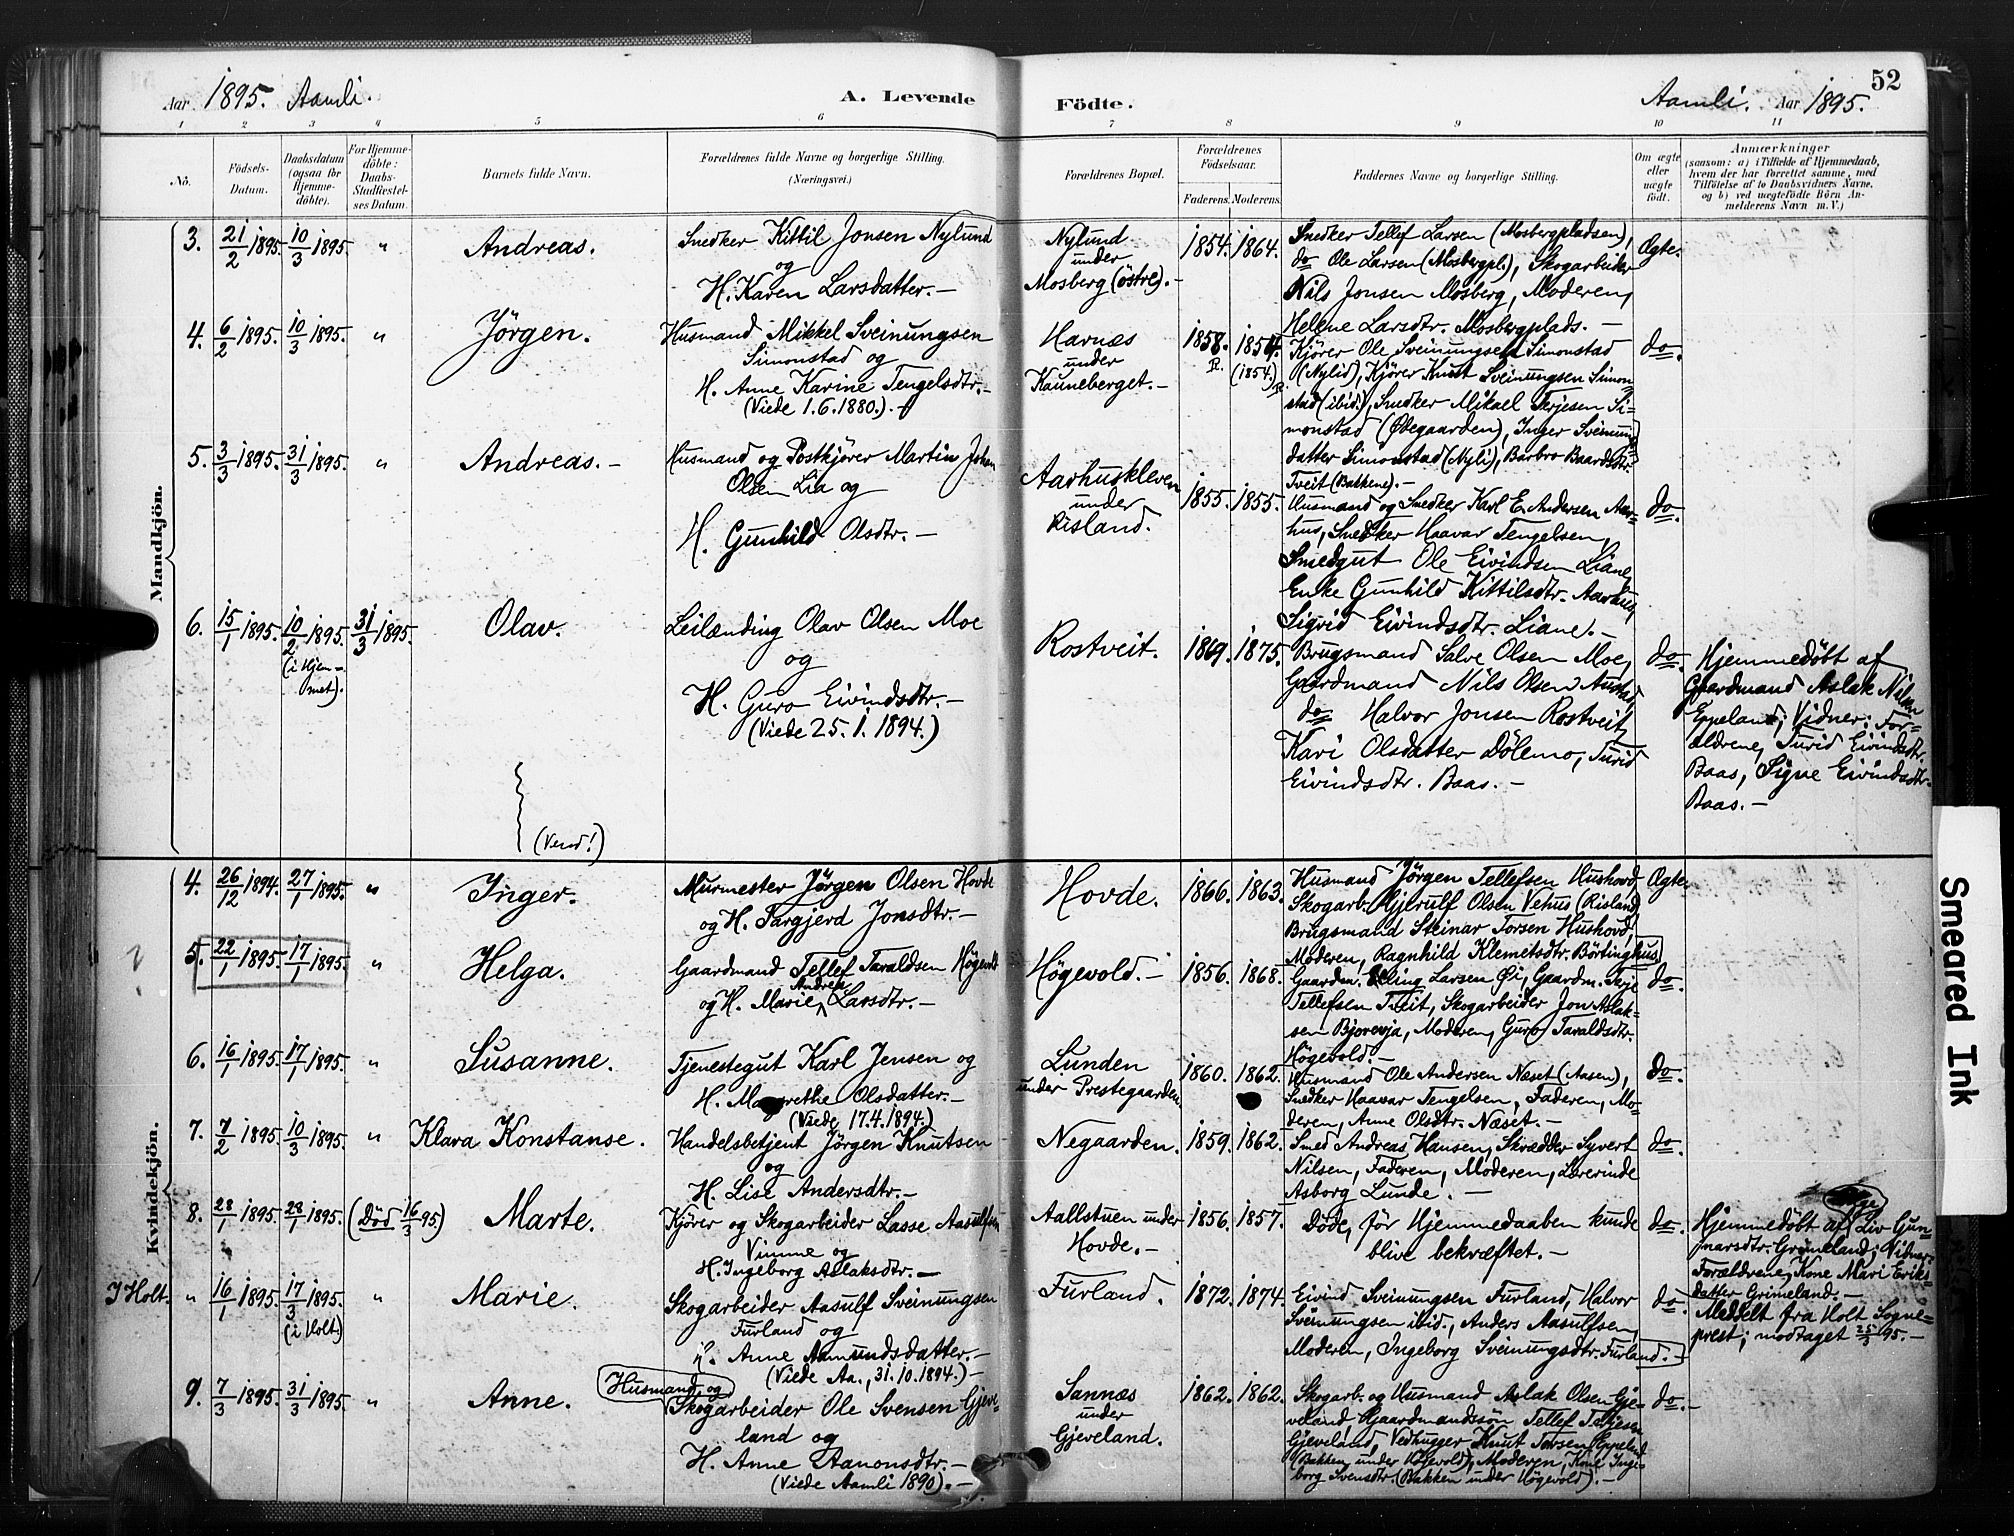 Aar 1895. Aamli. A. Levende
Födte. Aamli. Aar 1895. 52
1 2 3 4 5 6 7 8 9 10 11
No.
Födsels-
Datum.
Daabsdatum
(ogsaa for
Hjemme-
döbte).
For Hjemme-
döbte:
Daabs-
Stadfæstel-
ses Datum.
Barnets fulde Navn.
Forældrenes fulde Navne og borgerlige Stilling.
(Næringsvei.)
Forældrenes Bopæl.
Forældrenes
Födselsaar.
Faderens. Moderens.
Faddernes Navne og borgerlige Stilling.
Om ægte
eller
uægte
født.
Anmærkninger
(saasom: a) i Tilfælde af Hjemmedaab,
hvem der har forrettet samme, med
Tilföielse af to Daabsvidners Navne,
og b) ved uægtefödte Börn An-
melderens Navn m. V.)
Mandkjön.
3. 21/2 1895. 10/3 1895. " Andreas.
Snedker Kittil Jonsen Nylund
og
H. Karen Larsdatter. —
Nylund
under
Mosberg (östre). —
1854. 1864.
Snedker Tellef Larsen (Mosbergpladsen),
do Ole Larsen (Mosbergpl.), Skogarbeider
Nils Jonsen Mosberg, Moderen,
Helene Larsdtr. Mosbergplads. —
Ægte.
4. 6/2 1895. 10/3 1895. " Jörgen.
Husmand Mikkel Sveinungsen
Simonstad og
H. Anne Karine Tengelsdtr. —
(Viede 1.6.1880.). —
Harnæs
under
Kauneberget. —
1858. 1854.
(1854.)
Kjörer Ole Sveinungsen Simonstad
(Nylid), Kjörer Knut Sveinungsen Simon-
stad (ibid.), Snedker Mikael Terjesen Si-
monstad (Ödegaarden), Inger Sveinungs-
datter Simonstad (Nyli), Barbro Baardsdtr.
Tveit (Bakkene). —
do.
5. 3/3 1895. 31/3 1895. " Andreas. —
Husmand og Postkjörer Martin Johan
Olsen Lia og
H. Gunhild Olsdtr. —
Aarhuskleven
under
Risland.
1855. 1855.
Husmand og Snedker Karl E. Andersen Aar-
hus, Snedker Haavar Tengelsen,
Smedgut Ole Eivindsen Liane,
Enke Gunhild Kittilsdtr. Aarhus,
Sigrid Eivindsdtr. Liane. —
do.
6. 15/1 1895. 10/2 1895. 31/3 1895. Olav.
(i Hjem-
met).
Leilænding Olav Olsen Moe
og
H. Guro Eivindsdtr. —
(Viede 25.1.1894.)
Rostveit.
1869. 1875.
Brugsmand Salve Olsen Moe,
Gaardmand Nils Olsen Austad,
do Halvor Jonsen Rostveit,
Kari Olsdatter Dölemo, Turid
Eivindsdtr. Baas. —
do.
Hjemmedöbt af
Gaardmand Aslak Nilsen
Eppeland; Vidner: For-
ældrene, Turid Eivindsdtr.
Baas, Signe Eivindsdtr.
Baas. —
(Vend!)
Kvindekjön.
4. 26/12 1894. 27/1 1895. " Inger.
Murmester Jörgen Olsen Hovde
og H. Targjerd Jonsdtr. —
Hovde.
1866. 1863.
Husmand Jörgen Tellefsen Hushovd,
Skogarb. Gjerulf Olsen Vehus (Risland),
Brugsmand Steinar Torsen Hushovd,
Moderen, Ragnhild Klemetsdtr. Börtinghus.
Ægte.
? 5. 22/1 1895. 17/1 1895. " Helga.
Gaardmand Tellef Taraldsen Högevold
og H. Marie Andrea Larsdtr. —
Högevold. —
1856. 1868.
Gaardm. Elling Larsen Öi, Gaardm. Terje
Tellefsen Tveit, Skogarbeider Jon Aslak-
sen Bjorevja, Moderen, Guro Taraldsdtr.
Högevold. —
do.
6. 16/1 1895. 17/1 1895. " Susanne.
Tjenestegut Karl Jensen og
H. Margrethe Olsdatter. —
(Viede 17.4.1894.)
Lunden
under Prestegaarden.
1860. 1862.
Husmand Ole Andersen Næset (Aasen),
Snedker Haavar Tengelsen, Faderen, Mo-
deren, Anne Olsdtr. Næset. —
do.
7. 7/2 1895. 10/3 1895. " Klara Konstanse.
Handelsbetjent Jörgen Knutsen
og
H. Lise Andersdtr. —
Negaarden.
1859. 1862.
Smed Andreas Hansen, Skrædder Syvert
Nilsen, Faderen, Moderen, Lærerinde
Asborg Lunde. —
do.
8. 28/1 1895. 28/1 1895. (Död 16/3 95) Marte.
Kjörer og Skogarbeider Lasse Aasulfsen
Vimme og
H. Ingeborg Aslaksdtr. —
Aallstuen under
Hovde. —
1856. 1857.
Döde, för Hjemmedaaben kunde
blive bekræftet. —
do.
Hjemmedöbt af Liv Gun-
narsdtr. Grimeland; Vidner:
Forældrene, Kone Mari Eriks-
datter Grimeland. —
I Holt. " 16/1 1895. 17/3 1895. " Marie.
(i Holt.)
Skogarbeider Aasulf Sveinungsen
Furland og
H. Anne Aamundsdatter. —
(Viede Aa., 31.10.1894.) —
Furland.
1872. 1874.
Eivind Sveinungsen Furland, Halvor
Sveinungsen ibid., Anders Aasulfsen,
Moderen, Ingeborg Sveinungsdtr. Furland.
do.
Meddelt fra Holt Sogne-
prest; modtaget 25/3 95. —
9. 7/3 1895. 31/3 1895. " Anne.
Husmand og
Skogarbeider Ole Svensen Gjeve-
land og
H. Anne Aanonsdtr. —
(Viede Aamli 1890). —
Sannæs
under
Gjeveland.
1862. 1862.
Skogarb. og Husmand Aslak Olsen Gje-
veland, Gaardmandssön Tellef Tarjesen
Gjeveland, Vedhugger Knut Torsen Eppeland
(Bakken under Högevold), Moderen, Kone Inge-
borg Svensdtr. (Bakken under Högevold). —
do. —
Smeared Ink